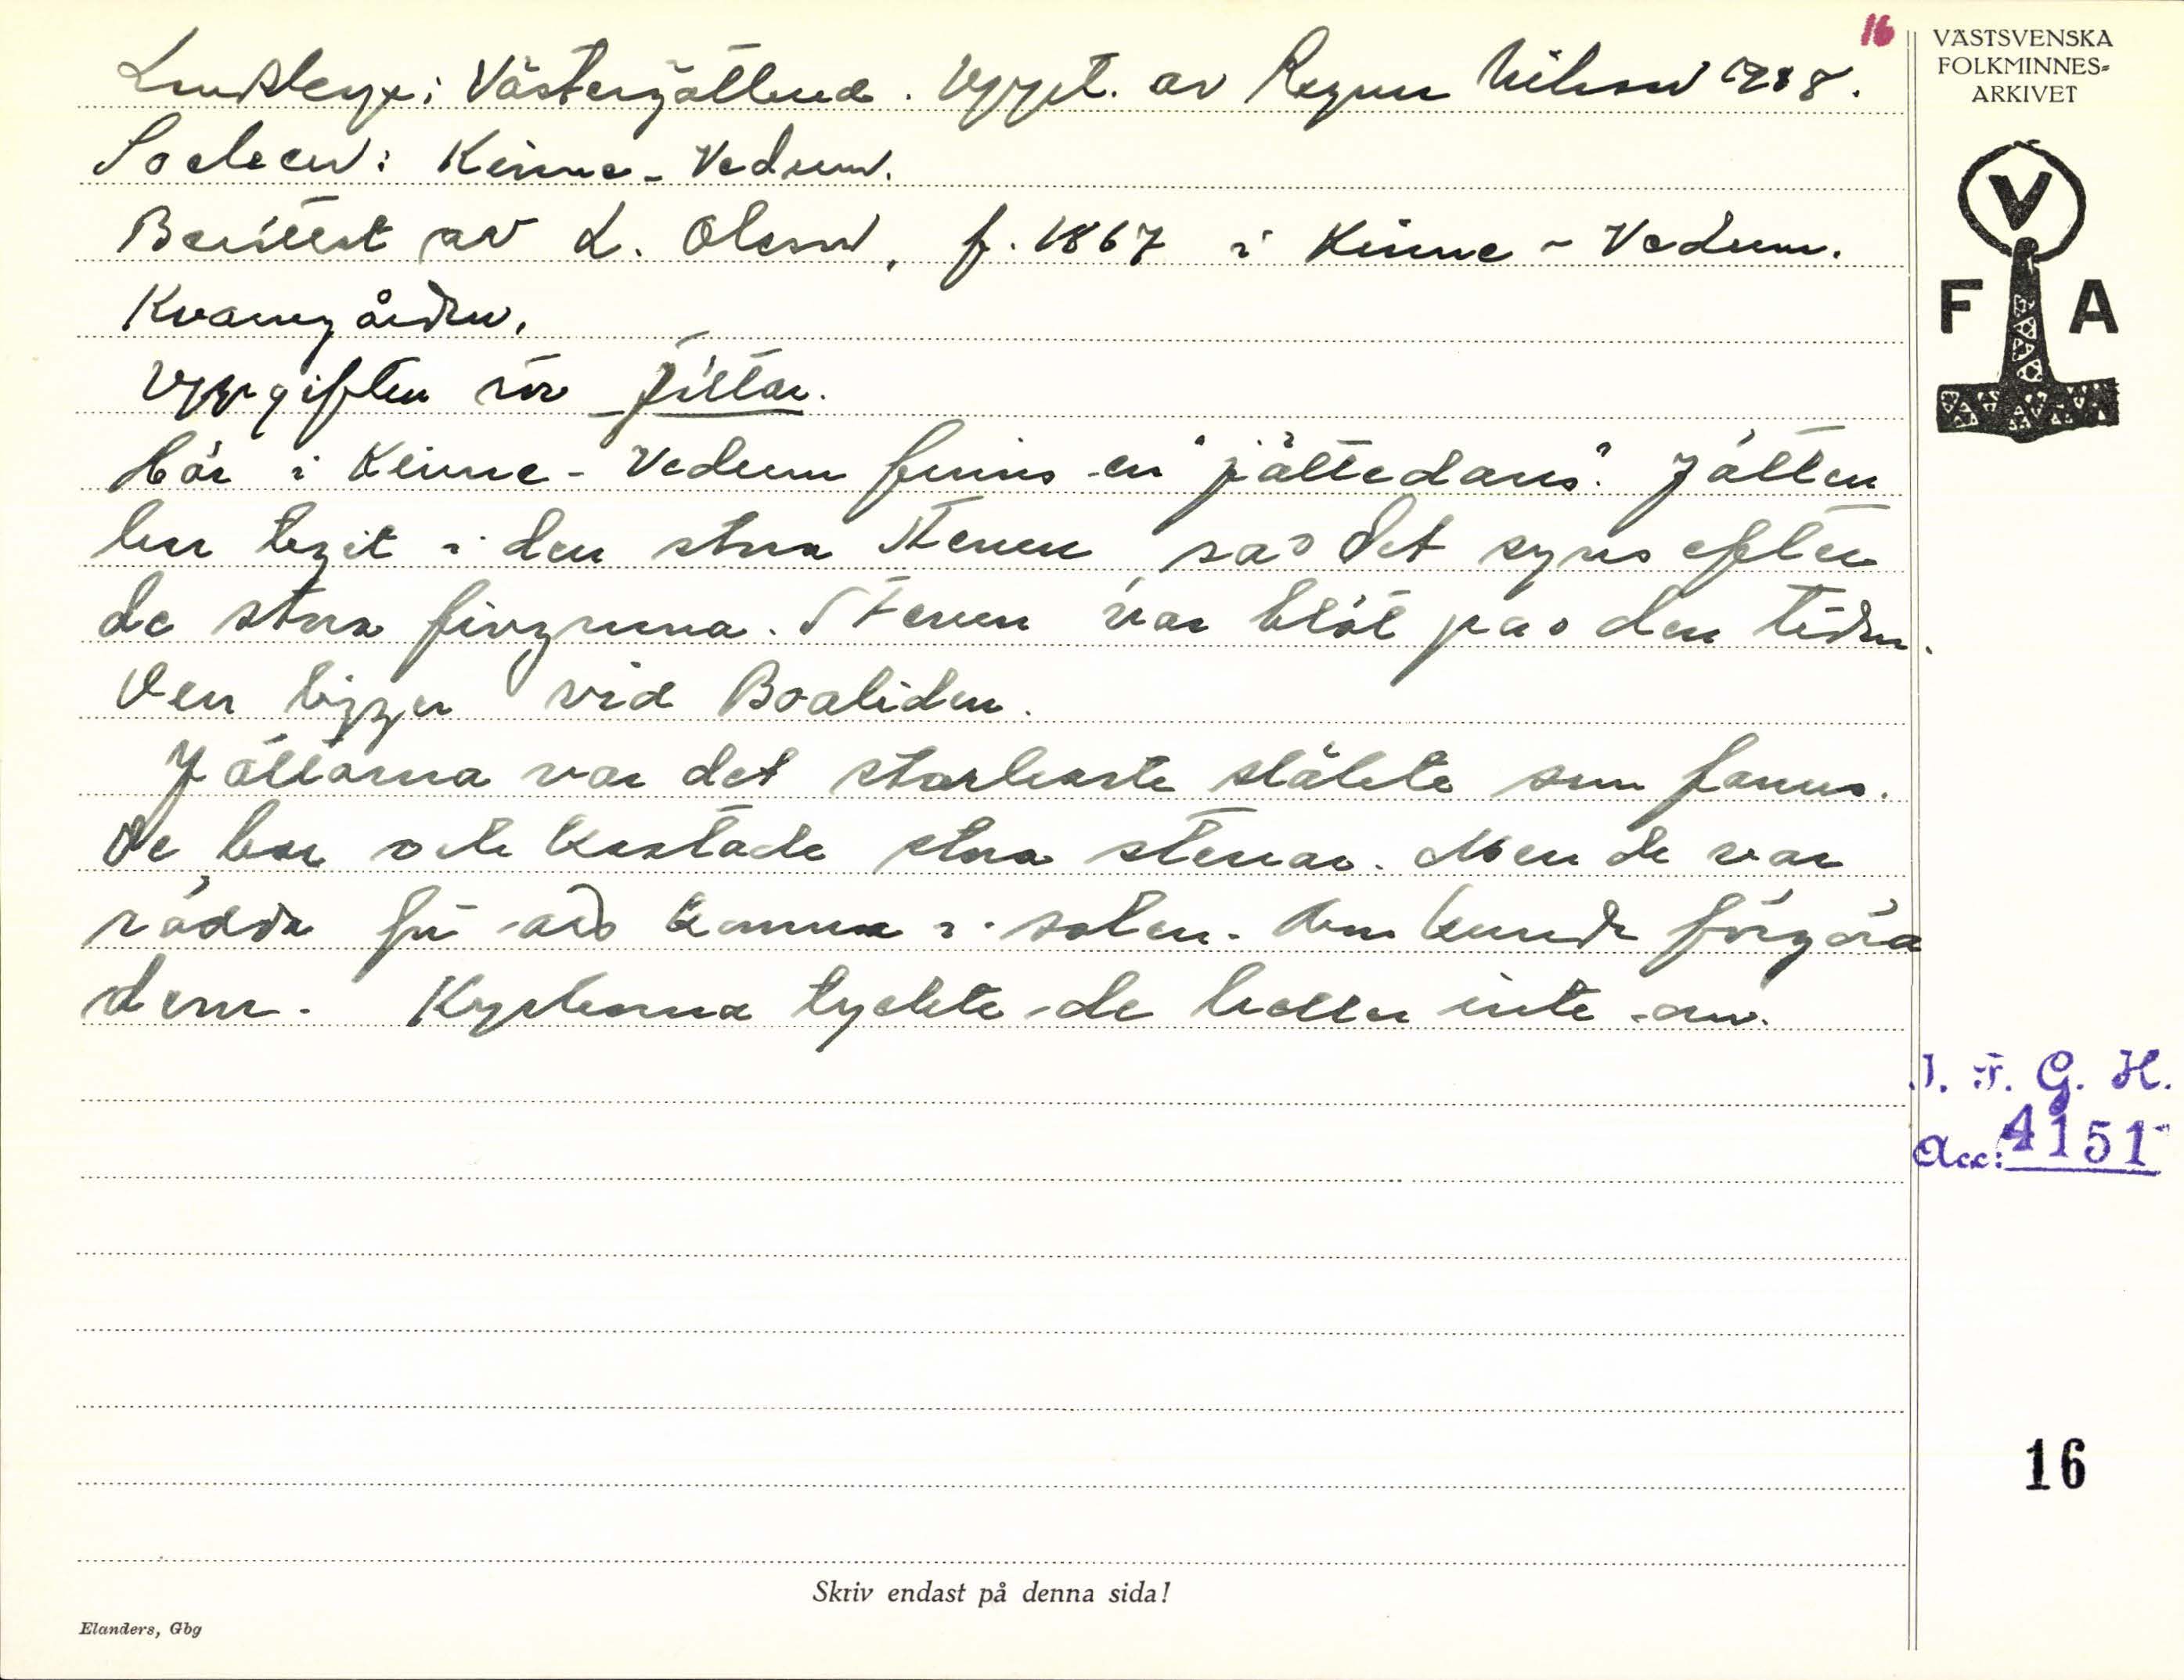 16
Landskap: Västergötland. Uppt. av Ragnar Nilsson 1938.
Socken: Kinne-Vedum.
Berättat av L. Olsson, f. 1867 i Kinne-Vedum.
Kvarngården.
Uppgiften rör Jättar.
Här i Kinne-Vedum finns en "jättedans". Jätten
har tagit i den stora stenen så det syns efter
de stora fingrarna. Stenen var blöt på den tiden.
Den ligger vid Boaliden.
Jättarna var det starkaste släkte som fanns.
De bar och kastade stora stenar. Men de var
rädda för att komma i solen. Den kunde förgöra
dem. Kyrkorna tyckte de heller inte om.
VÄSTSVENSKA
FOLKMINNES-
ARKIVET
V
F A
I. F. G. H.
Acc: 4151
16
Skriv endast på denna sida!
Elanders, Gbg